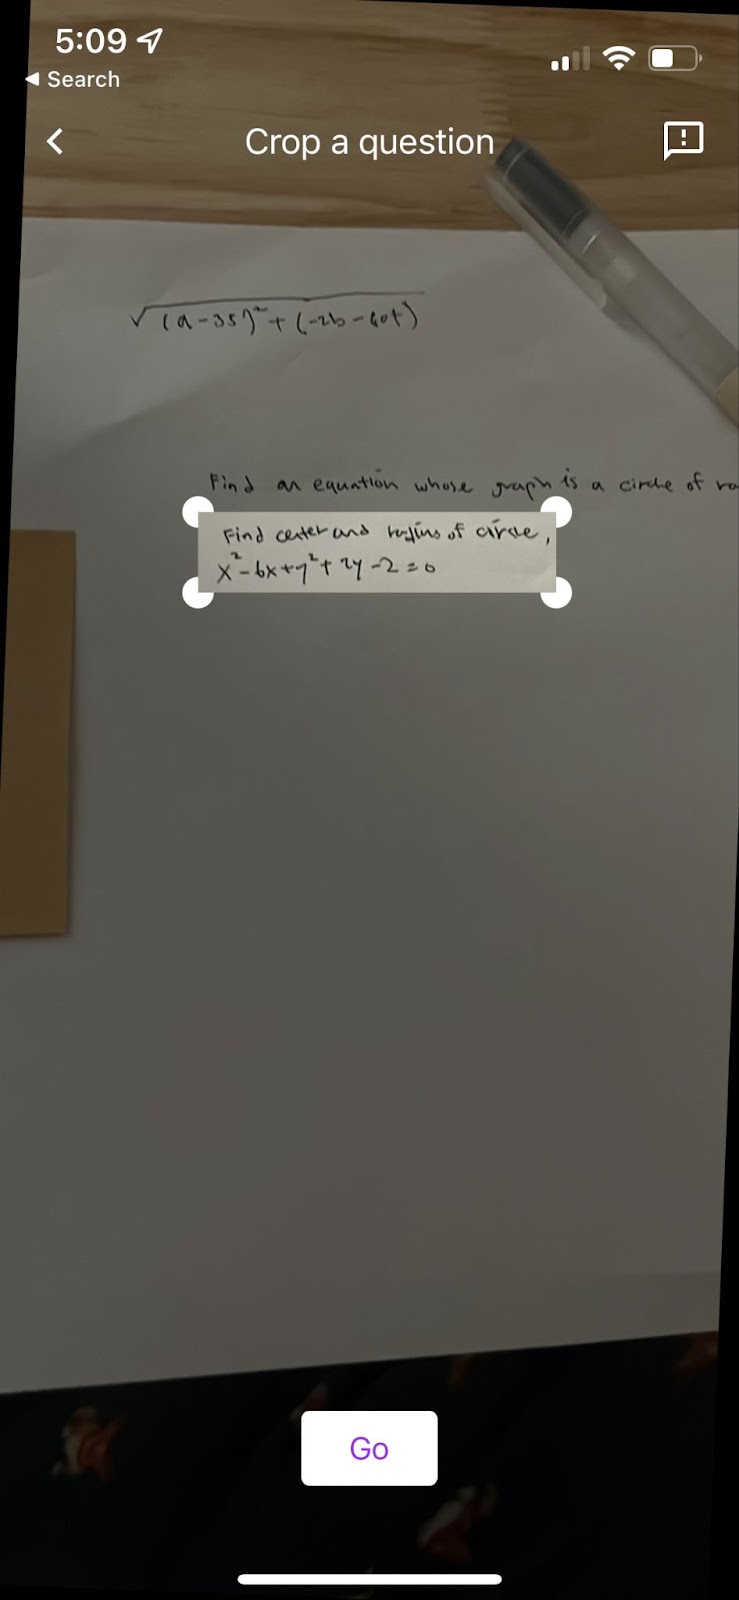 5:09
Search
Crop a question
√(a-35)²+(-2b-60t)
Find an equation whose graph is a circle of ra
Find center and radius of circle,
x²-6x+y²+2y-2=0
Go